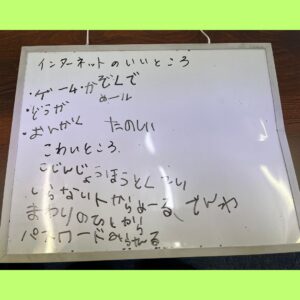 インターネットのいいところ
・ゲーム・かぞくで
メール
・どうが
・おんがく たのしい
こわいところ
こじんじょうほうとくてい
しらない人からメール、でんわ
まわりのひとから
パスワード